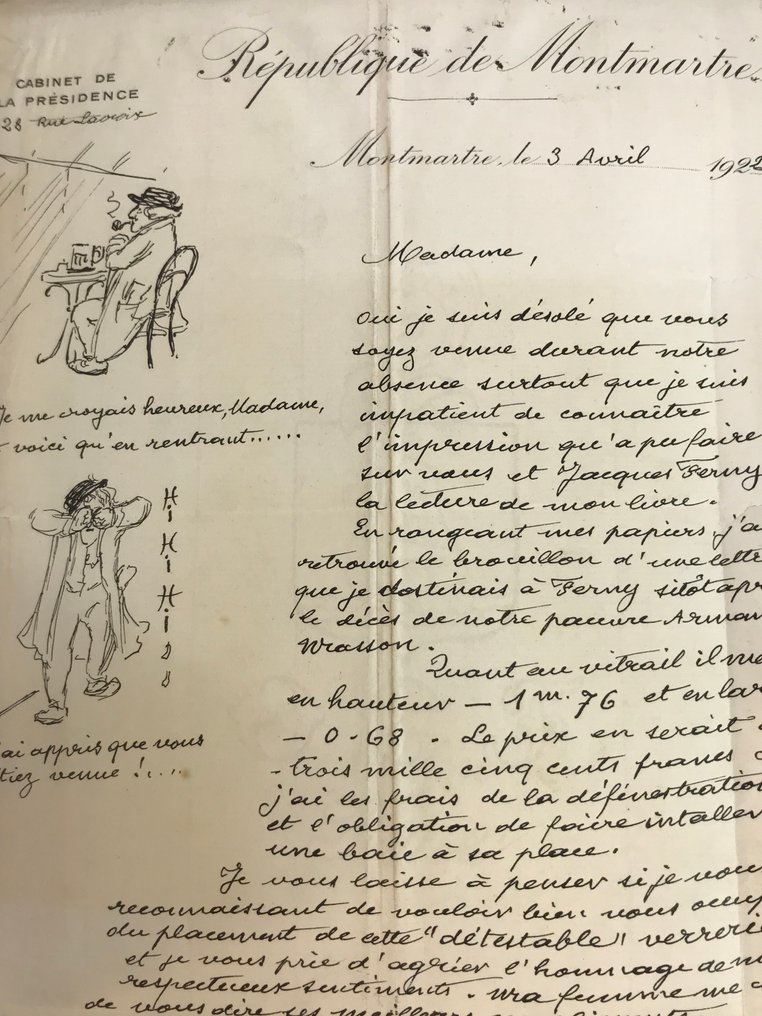 République de Montmartre
CABINET DE
LA PRÉSIDENCE
28 Rue Lacroix
Montmartre, le 3 Avril 1922
Madame,
Oui je suis désolé que vous
soyez venue durant notre
absence surtout que je suis
impatient de connaître
l'impression qu'a pu faire
sur vous et Jacques Ferny
la lecture de mon livre.
En rangeant mes papiers, j'a
retrouvé le brouillon d'une lettr
que je destinais à Ferny sitôt apr
le décès de notre pauvre Arman
Masson.
Quant au vitrail il me
en hauteur — 1m.76 et en lar
— 0.68. Le prix en serait
-trois mille cinq cents francs
j'ai les frais de la défénestration
et l'obligation de faire intaller
une baie à sa place.
Je vous laisse à penser si je vou
reconnaissant de vouloir bien vous occup
du placement de cette "détestable" verrerie
et je vous prie d'agréer l'hommage de m
respectueux sentiments. Ma femme me
de vous dire ses meilleurs compliments
Je me croyais heureux, Madame,
t voici qu'en rentrant......
Hi
Hi
Hi
'ai appris que vous
tiez venue !....